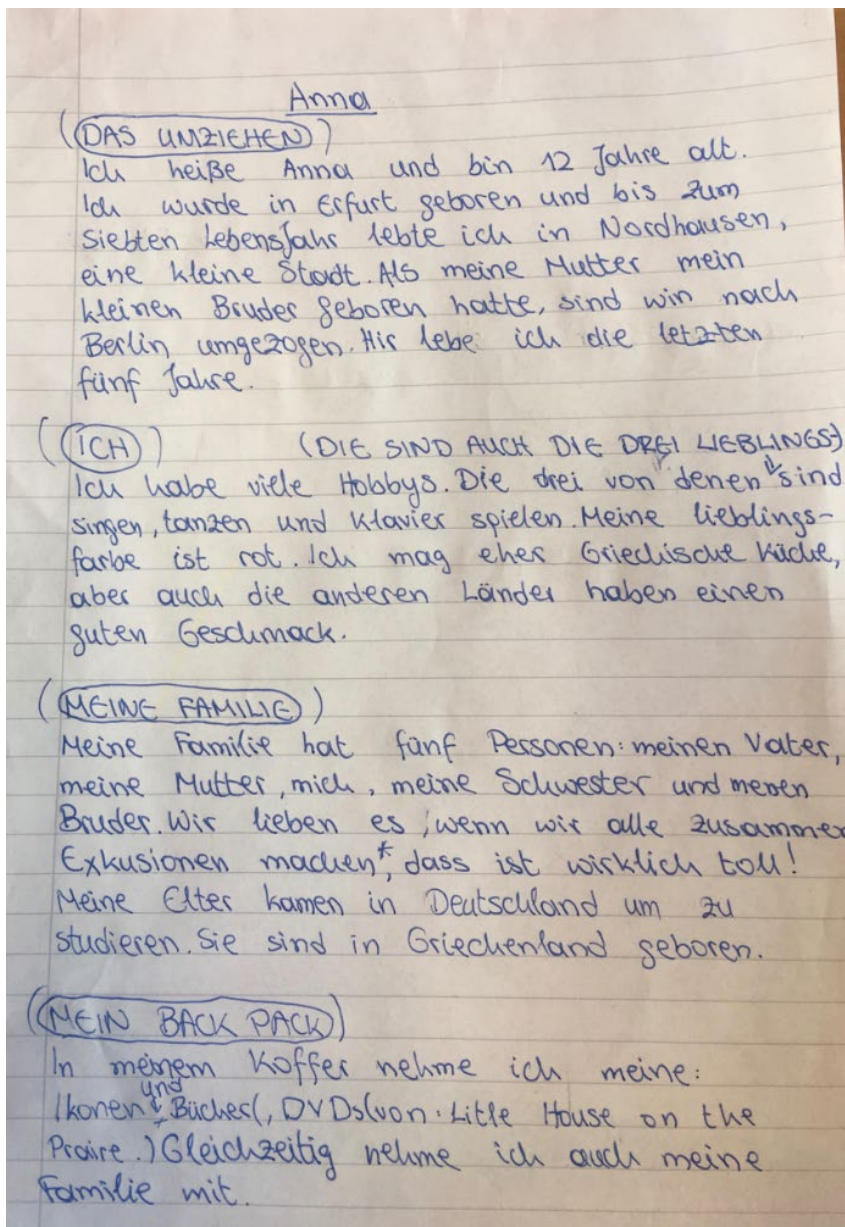 Anna
(DAS UMZIEHEN)
Ich heiße Anna und bin 12 Jahre alt.
Ich wurde in Erfurt geboren und bis zum
siebten Lebensjahr lebte ich in Nordhausen,
eine kleine Stadt. Als meine Mutter mein
kleinen Bruder geboren hatte, sind win nach
Berlin umgezogen. Hir lebe ich die letzten
fünf Jahre.
(ICH) (DIE SIND AUCH DIE DREI LIEBLINGS)
Ich habe viele Hobbys. Die drei von denen sind
singen, tanzen und Klavier spielen. Meine lieblings-
farbe ist rot. Ich mag eher Griechische Küche,
aber auch die anderen Länder haben einen
guten Geschmack.
(MEINE FAMILIE)
Meine Familie hat fünf Personen: meinen Vater,
meine Mutter, mich, meine Schwester und meinen
Bruder. Wir lieben es, wenn wir alle zusammen
Exkusionen machen*, dass ist wirklich toll!
Meine Elter kamen in Deutschland um zu
studieren. Sie sind in Griechenland geboren.
(MEIN BACK PACK)
In meinem Koffer nehme ich meine:
Ikonen und Bücher(, DVDs(von: Litle House on the
Praire.) Gleichzeitig nehme ich auch meine
Familie mit.